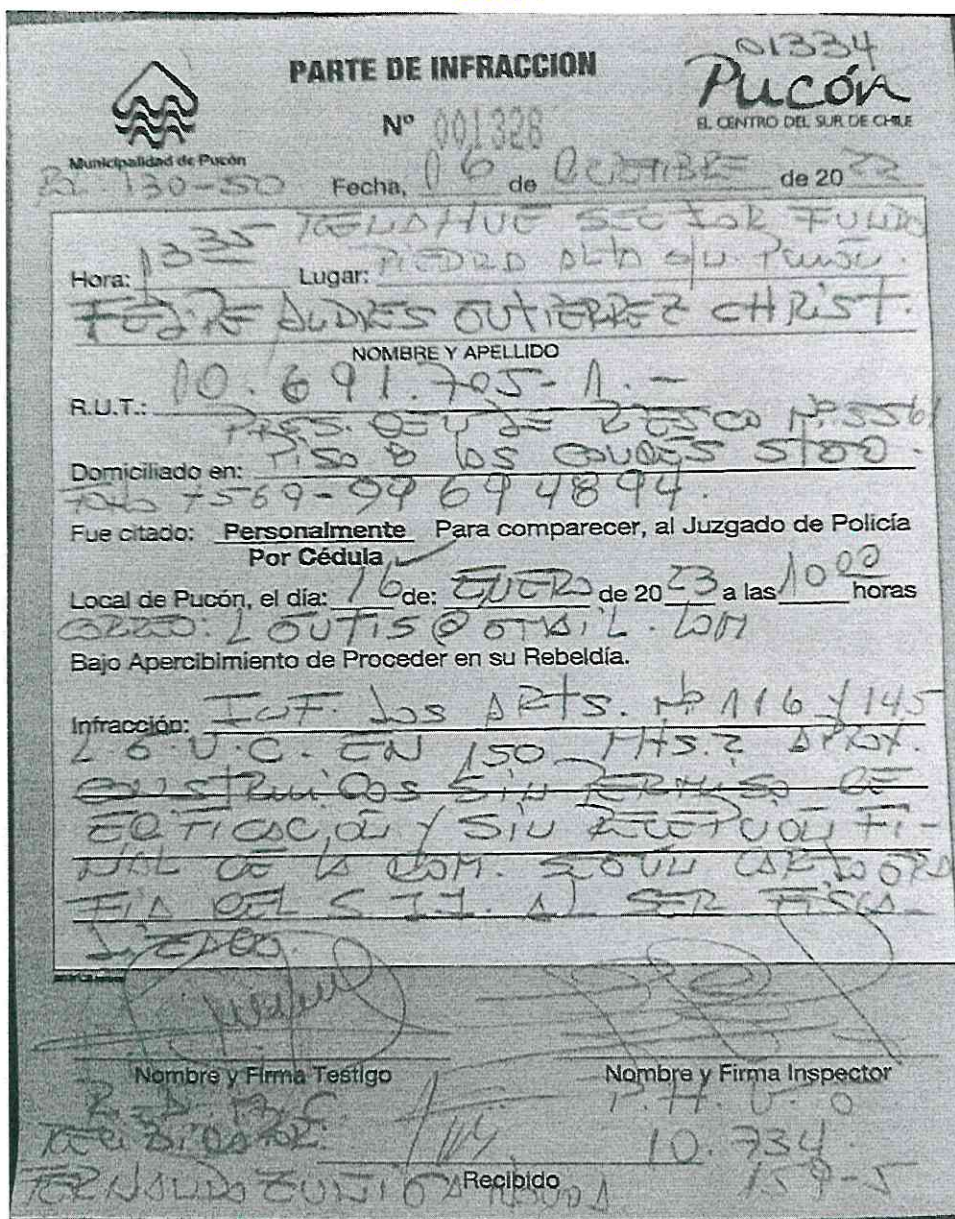 01334
PARTE DE INFRACCION
Pucón
EL CENTRO DEL SUR DE CHILE
Nº 001328
Municipalidad de Pucón
130-50
Fecha, 06 de de 2022
SECTOR FUNDO
Hora: 13 35 Lugar: PIEDRA ALTA S/N. Pucón.
FELIPE ANDRES GUTIERREZ CHRIST.
NOMBRE Y APELLIDO
R.U.T.: 10.691.705-1.-
PRES. RIESCO Nº 5561
Domiciliado en: PISO 8 LOS CONDES STGO.
Fue citado: Personalmente Para comparecer, al Juzgado de Policía
Por Cédula
Local de Pucón, el día: 16 de: ENERO de 2023 a las 10 00 horas
Bajo Apercibimiento de Proceder en su Rebeldía.
Infracción: INF. los ARTS. Nº 116 Y 145
L.G.U.C. EN 150 MTS.2 APROX.
CONSTRUIDOS SIN PERMISO DE
EDIFICACION Y SIN RECEPCION FI-
NAL DE LA DOM. SEGUN CARTOGRA
FIA DEL S.I.I. AL SER FISCA-
LIZADO.
Nombre y Firma Testigo
Nombre y Firma Inspector
10.734.
FERNANDO ZUÑIGA
Recibido